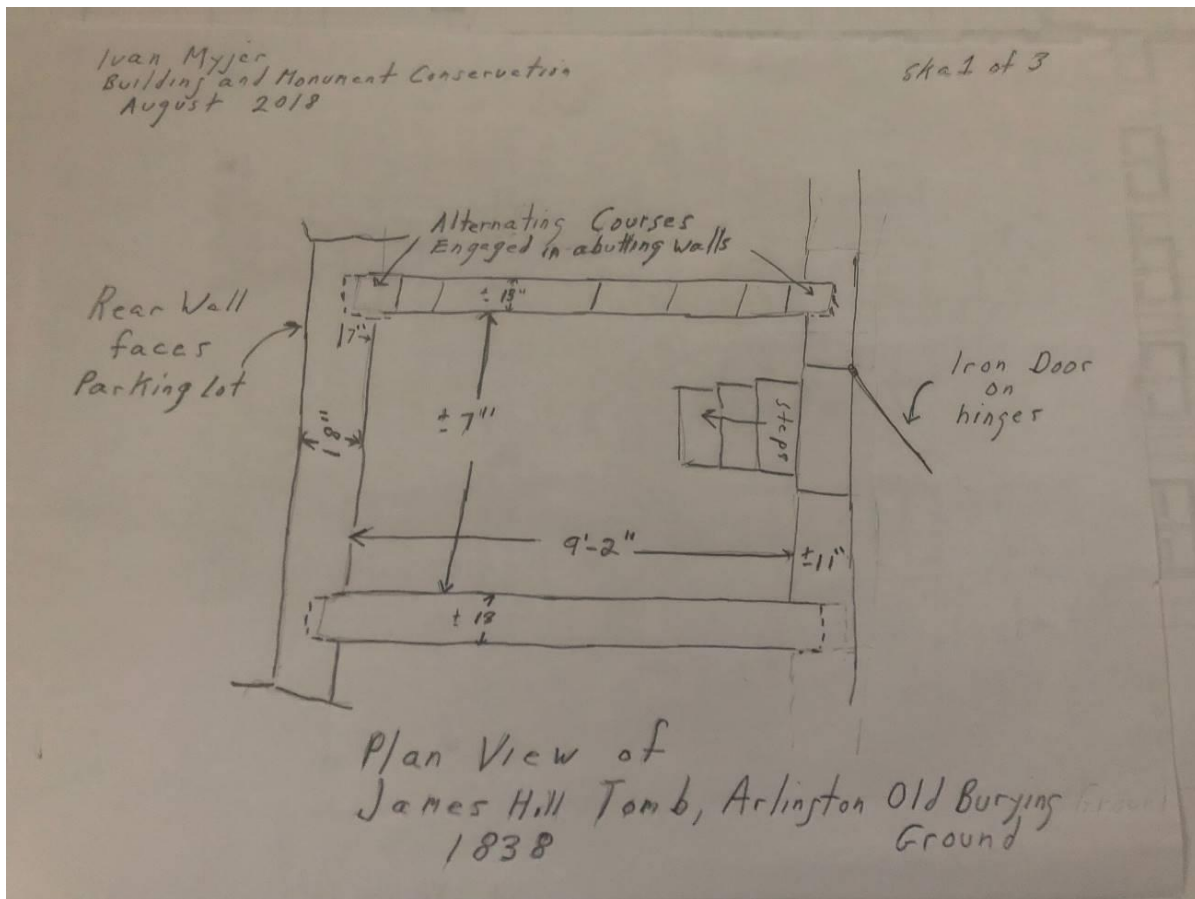 Ivan Myjer
Building and Monument Conservation
August 2018
Ska 1 of 3
Alternating Courses
Engaged in abutting walls
Rear Wall
faces
Parking Lot
17"
18"
± 7'
Steps
Iron Door
on
hinges
9'-2"
±11"
± 18
Plan View of
James Hill Tomb, Arlington Old Burying
Ground
1838